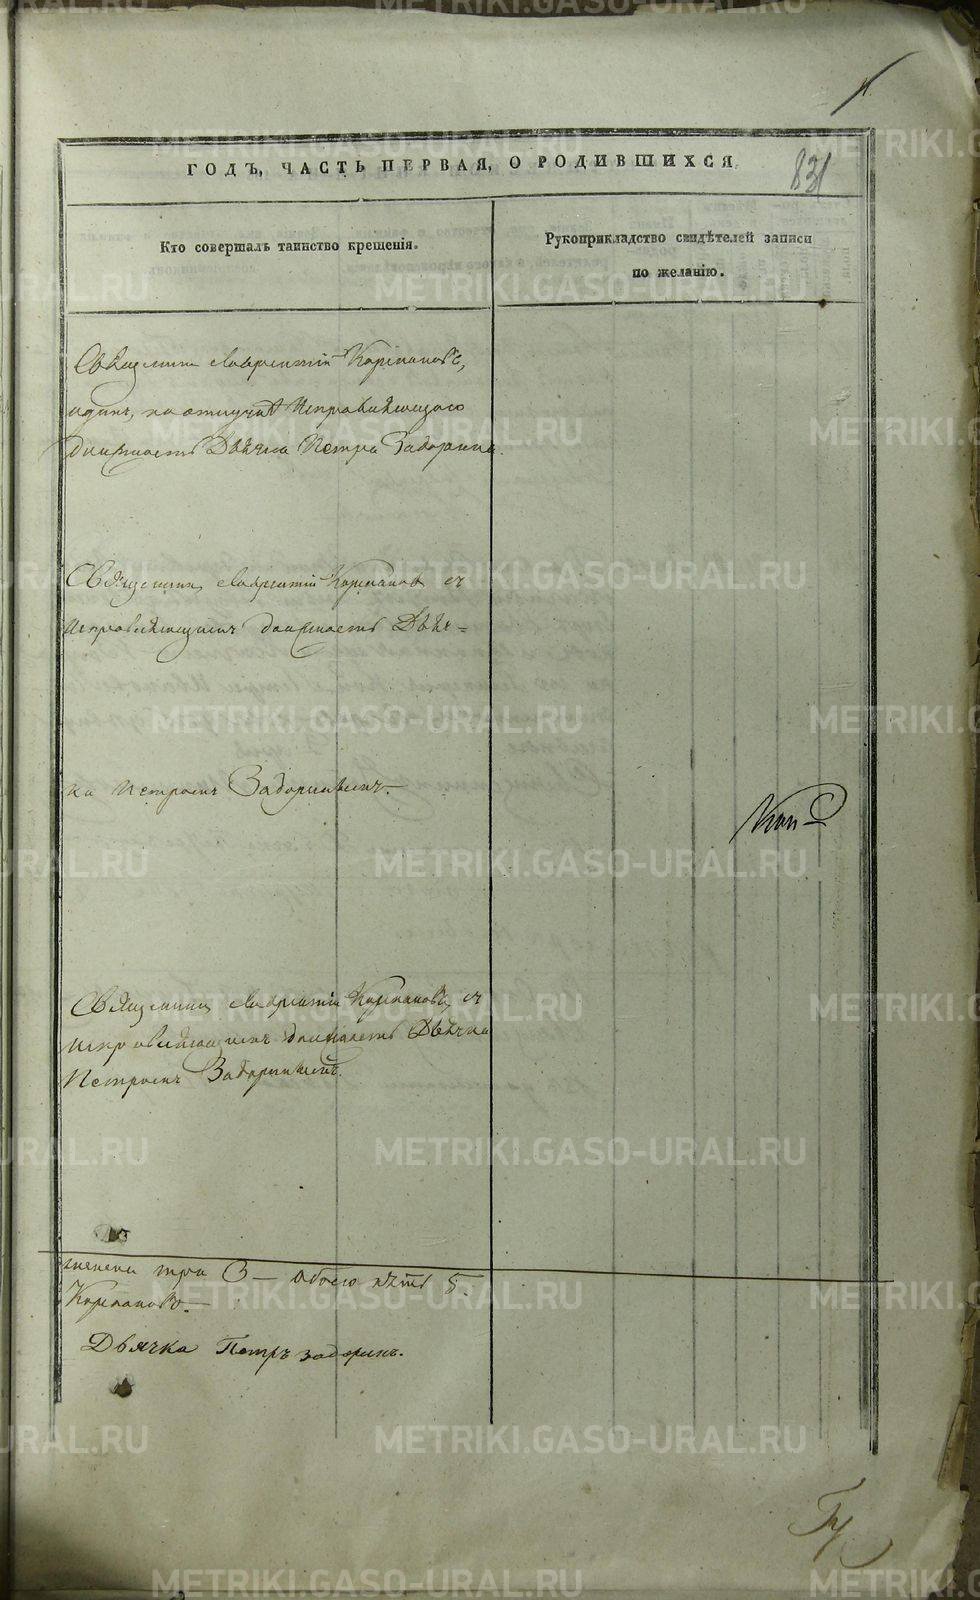 ГОДЪ, ЧАСТЬ ПЕРВАЯ, О РОДИВШИХСЯ.
831
Кто совершалъ таинство крещенія.
Рукоприкладство свидѣтелей записи
по желанію.
Священникъ Лаврентій Корепановъ,
одинъ, по отлучкѣ Исправляющаго
должность Дьячка Петра Задорина.
Священникъ Лаврентій Корепановъ съ
Исправляющимъ должность Дьяч=
ка Петромъ Задоринымъ.—
Священникъ Лаврентій Корепановъ съ
Исправляющимъ должность Дьячка
Петромъ Задоринымъ.
женска три 3 — Обоего пять 5.
Корепановъ.—
Дьячка Петръ Задоринъ.
METRIKI.GASO-URAL.RU